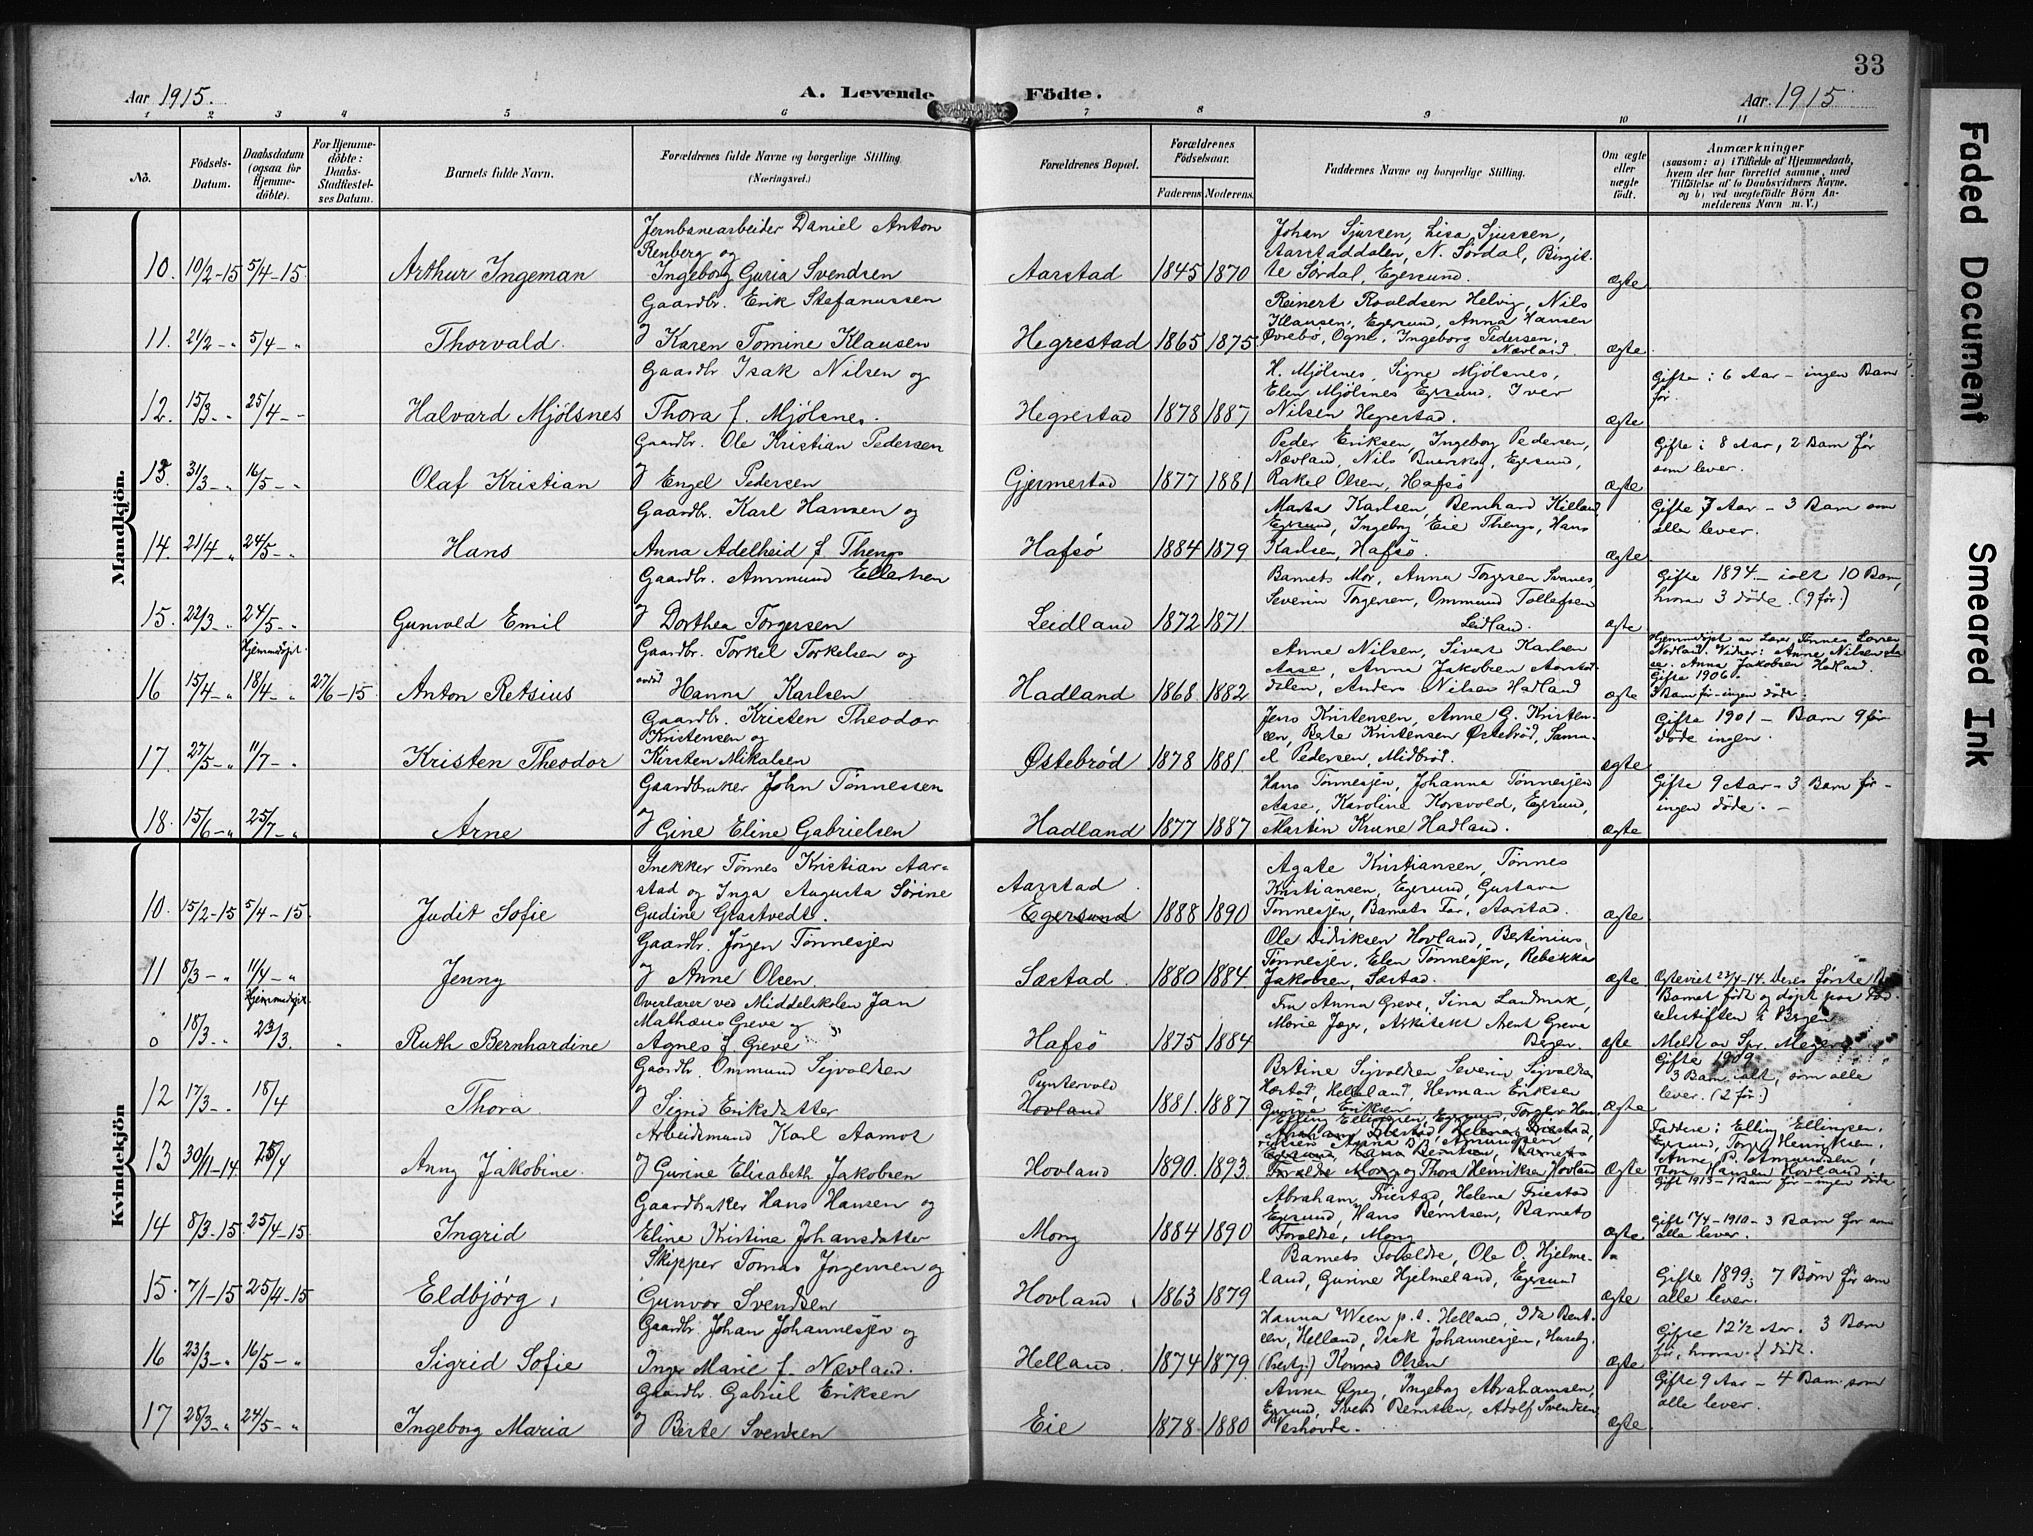 33
Aar 1915.
A. Levende Födte.
Aar 1915
1 2 3 4 5 6 7 8 9 10 11
No.
Födsels-Datum.
Daabsdatum (ogsaa for Hjemme-döbte).
For Hjemme-döbte: Daabs-Stadfæstel-ses Datum.
Barnets fulde Navn.
Forældrenes fulde Navne og borgerlige Stilling. (Næringsvei.)
Forældrenes Bopæl.
Forældrenes Födselsaar.
Faderens Moderens.
Faddernes Navne og borgerlige Stilling.
Om ægte eller uægte födt.
Anmærkninger
(saasom: a) i Tilfælde af Hjemmedaab, hvem der har forrettet samme, med Tilföielse af to Daabsvidners Navne, og b) ved uægtefödte Börn An-melderens Navn m. V.)
Mandkjön.
10. 10/2-15 5/4-15 Arthur Ingeman
Jernbanearbeider Daniel Anton
Renberg og
Ingeborg Guria Svendsen
Aarstad 1845 1870
Johan Sjursen, Lisa Sjursen,
Aarstaddalen, N. Sørdal, Birgit-
te Sørdal, Egersund.
ægte
11. 21/2 - " 5/4 - " Thorvald.
Gaardbr. Erik Stefanussen
Karen Tomine Klausen
Hegrestad 1865 1875
Reinert Roaldsen Helvig, Nils
Klausen, Egersund, Anna Hansen
Øvrebø, Ogne, Ingeborg Pedersen,
Nævland.
ægte
12. 15/3 - " 25/4 - " Halvard Mjölsnes
Gaardbr Isak Nilsen og
Thora f. Mjölsnes.
Hegrestad 1878 1887
H. Mjölsnes, Signe Mjölsnes,
Elen Mjölsnes Egersund, Iver
Nilsen Hegrestad.
ægte
Gifte i 6 Aar - ingen Barn
før.
13. 31/3 - " 16/5 - " Olaf Kristian
Gaardbr. Ole Kristian Pedersen
Engel Pedersen
Gjermestad 1877 1881
Peder Eriksen, Ingeborg Pedersen,
Nævland, Nils Egersund,
Rakel Olsen, Hafsö
ægte
Gifte i 8 Aar, 2 Barn før
som lever.
14. 21/4 - " 24/5 - " Hans
Gaardbr. Karl Hansen og
Anna Adelheid f. Thengs
Hafsö 1884 1879
Marta Karlsen, Bernhard Kielland
Egersund, Ingeborg Eie Thengs, Hans
Karlsen, Hafsö.
ægte
Gifte 7 Aar - 3 Barn som
alle lever.
15. 22/3 - " 24/5 - " Gunvald Emil
Gaardbr. Ammund Ellertsen
Dorthea Torgersen
Leidland 1872 1871
Barnets Mor, Anna Torgersen Svanes,
Severin Torgersen, Ommund Tollefsen
Leidland.
ægte
Gifte 1894 - ialt 10 Barn,
hvorav 3 döde. (9 før.)
16 15/4 - " Hjemmedöpt 18/4 - " 27/6-15 Anton Retsius
Gaardbr. Torkel Torkelsen og
Hanna Karlsen
Hadland 1868 1882
Anne Nilsen, Sivert Karlsen
Aase, Anna Jakobsen Aarstad-
dalen, Anders Nilsen Hadland
ægte
Hjemmedöpt av Lærer Tönnes
Vidner: Anne Nilsen Aa-
se. Anna Jakobsen Hadland.
Gifte 1906.
3 Barn før - ingen döde.
17. 27/5 - " 11/7 - " Kristen Theodor
Gaardbr. Kristen Theodor
Kristensen og
Kirsten Mikalsen
Østebrød 1878 1881.
Jens Kristensen, Anne G. Kristen-
sen, Berte Kristensen Østebröd, Samu-
el Pedersen, Midbröd.
ægte
Gifte 1901 - Barn 9 før
döde ingen.
18. 15/6 - " 25/7 - " Arne
Gaardbruker John Tönnessen
Gine Eline Gabrielsen
Hadland 1877 1887
Hans Tönnesjen, Johanna Tönnesjen
Aase, Karoline Korsvold, Egersund,
Martin Krune Hadland.
ægte
Gifte 9 Aar - 3 Barn før -
ingen döde. -
Kvindekjön
10. 15/2-15 5/4-15 Judit Sofie
Snekker Tönnes Kristian Aar-
stad og Inga Augusta Sörine
Gudine Grastvedt.
Aarstad
Egersund 1888 1890
Agate Kristiansen, Tönnes
Kristiansen, Egersund, Gustava
Tönnesjen, Barnets Far, Aarstad.
ægte
11 8/3 - " 11/4 - " Jenny
Gaardbr. Jörgen Tönnesjen
Anne Olsen.
Sæstad. 1880 1884
Ole Didriksen Hovland, Bertinius
Tönnesjen, Elen Tönnesjen, Rebekka
Jakobsen, Sæstad.
ægte
18/3 Hjemmedöpt 23/3. Ruth Bernhardine
Overlærer ved Middelskolen Jan
Mathæus Greve og
Agnes f. Greve
Hafsö 1875 1884
Fru Anna Greve, Sina Landmak,
Marie Jæger, Arkitekt Arent Greve
Bergen.
ægte
Ægteviet 22/4-14. Deres første
Barnet födt og döpt paa Föd-
selstiften i Bergen
Meldt av Spr. Meyer
12 17/3 - " 18/4 Thora.
Gaardbr. Ommund Sigvaldsen
Sigrid Eriksdatter
Puntervold
Hovland 1881. 1887
Bertine Sigvaldsen Severin Sigvaldsen
Hæstad, Helleland, Herman Eriksen
Gurine Eriksen
ægte
Gifte 1909
3 Barn ialt, som alle
lever. (2 før.)
13 30/11-14 25/4 Anny Jakobine.
Arbeidsmand Karl Aamot
Gurine Elisabeth Jakobsen
Hovland 1890. 1893.
Elling Ellingsen, Egersund, Torger Hen-
Abraham Friestad, Helene Friestad,
riksen Anna B. Amundsen
Egersund, Hans Berntsen, Barnets
Foraldre Mong og Thora Henriksen Hovland
ægte
Faddere: Elling Ellingsen,
Egersund, Torger Henriksen,
Anne P. Amundsen,
Thora Hansen Hovland.
Gift 1913 - 1 Barn før - ingen döde
14 8/3-15. 25/4-15 Ingrid
Gaardbruker Hans Hansen og
Eline Kristine Johansdatter
Mong 1884 1890
Abraham Friestad, Helene Friestad
Egersund, Hans Berntsen, Barnets
Foraldre, Mong
ægte
Gift 17/4-1910 - 3 Barn før som
alle lever.
15. 7/1-15 25/4-15 Eldbjörg,
Skipper Tomas Jörgensen og
Gunvor Svendsen
Hovland 1863 1879
Barnets Foraldre, Ole O. Hjelme-
land, Gurine Hjelmeland, Egersund
ægte
Gifte 1899; 7 Börn før som
alle lever.
16 23/3 - " 16/5 - " Sigrid Sofie
Gaardbr. Johan Johannesjen og
Inger Marie f. Nævland.
Helland. 1874 1879.
Hanna Ween p.t. Helland, Ida Bent-
sen, Helland, Isak Johannesjen, Huseby.
Konrad Olsen
ægte
Gifte 12½ Aar. 3 Barn
før, hvorav 1 död.
17 28/3 - " 24/5 - " Ingeborg Maria
Gaardbr. Gabriel Eriksen
Berte Svendsen
Eie 1878 1880
Anna Øyen, Ingeborg Abrahamsen,
Egersund, Svend Berntsen, Adolf Svendsen
Veshovde.
ægte.
Gifte 9 Aar - 4 Barn som
alle lever.
Faded Document
Smeared Ink